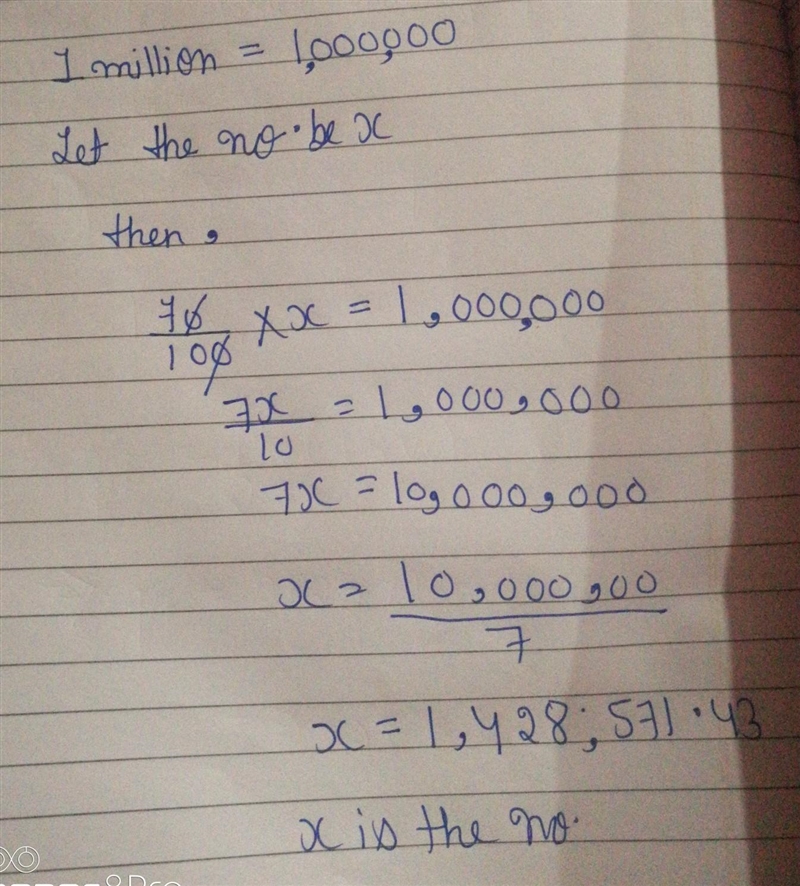 1 million = 1,000,000
Let the no. be x
then,
70/100 × x = 1,000,000
7x/10 = 1,000,000
7x = 10,000,000
x = 10,000,00/7
x = 1,428;571.43
x is the no.